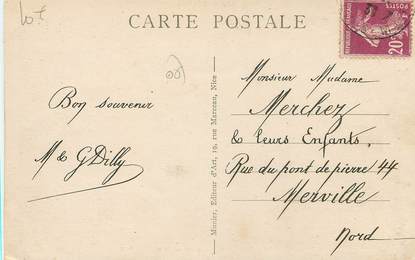 Lot
CARTE POSTALE
RÉPUBLIQUE FRANÇAISE
POSTES
20c
Bon souvenir
M & G Dilly
Munier, Éditeur d'Art, 19, rue Marceau, Nice
Monsieur Madame
Merchez
& leurs Enfants.
Rue du pont de pierre 44
Merville
Nord